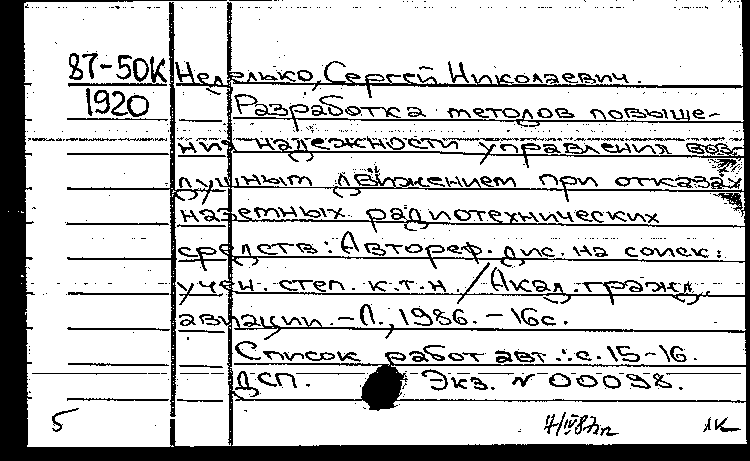 87-50К Неделько, Сергей Николаевич.
1920 Разработка методов повыше-
ния надежности управления воз-
душным движением при отказах
наземных радиотехнических
средств: Автореф. дис. на соиск.
учен. степ. к.т.н. / Акад. гражд.
авиации. - Л., 1986. - 16с.
Список работ авт.: с. 15-16.
ДСП. Экз. N 00098.
5 4/IV87г ЛК